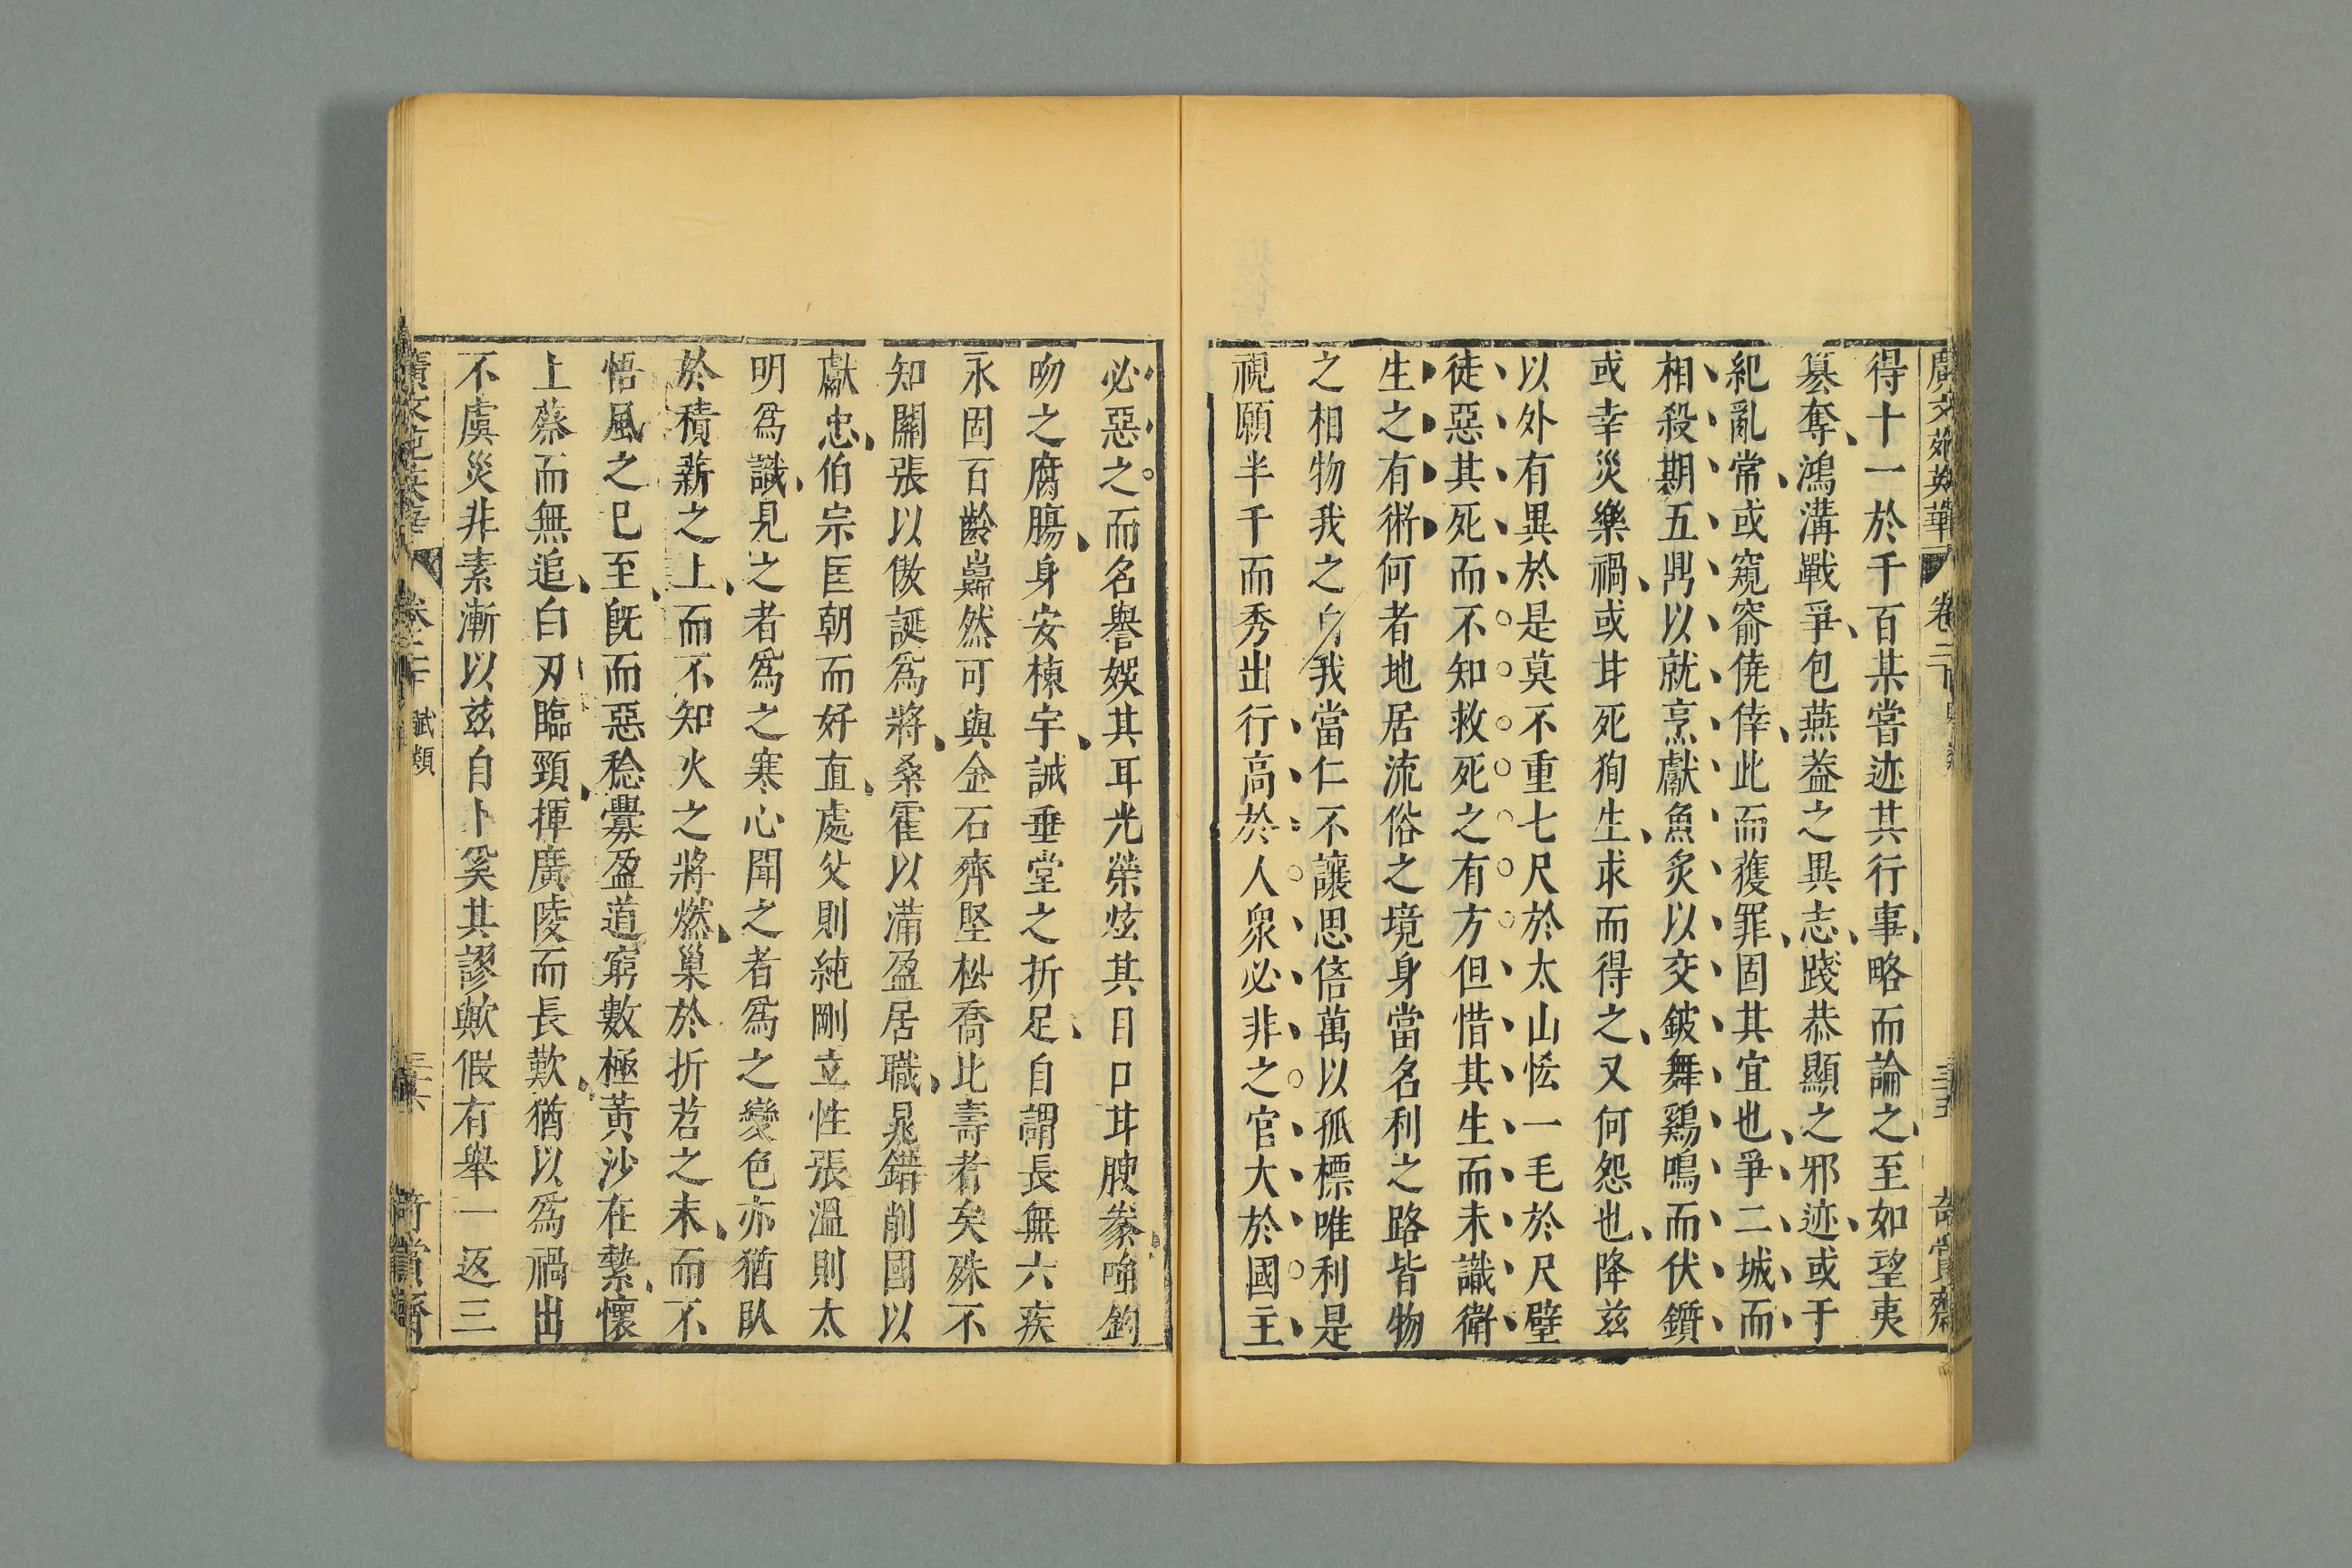 廣文苑英華 卷二十 賦類 三十五 奇賞齋
得十一於千百某嘗迹其行事略而論之至如望夷
篡奪鴻溝戰爭包燕蓋之異志踐恭顯之邪迹或于
紀亂常或窺窬僥倖此而獲罪固其宜也爭二城而
相殺期五鼎以就烹獻魚炙以交鈹舞鷄鳴而伏鑕
或幸災樂禍或甘死狥生求而得之又何怨也降茲
以外有異於是莫不重七尺於太山恡一毛於尺璧
徒惡其死而不知救死之有方但惜其生而未識衛
生之有術何者地居流俗之境身當名利之路皆物
之相物我之自我當仁不讓思倍萬以孤標唯利是
視願半千而秀出行高於人衆必非之官大於國主
必惡之而名譽娛其耳光榮炫其目口甘腴豢吻鈞
吻之腐腸身安棟宇誠垂堂之折足自謂長無六疾
永固百齡巋然可與金石齊堅松喬比壽者矣殊不
知關張以傲誕爲將桑霍以滿盈居職晁錯削國以
獻忠伯宗匡朝而好直處父則純剛立性張溫則太
明爲識見之者爲之寒心聞之者爲之變色亦猶臥
於積薪之上而不知火之將燃巢於折苕之末而不
悟風之已至旣而惡稔釁盈道窮數極黃沙在縶懷
上蔡而無追白刃臨頸揮廣陵而長歎猶以爲禍出
不虞災非素漸以茲自卜奚其謬歟假有舉一返三
廣文苑英華 卷二十 賦類 三十六 奇賞齋